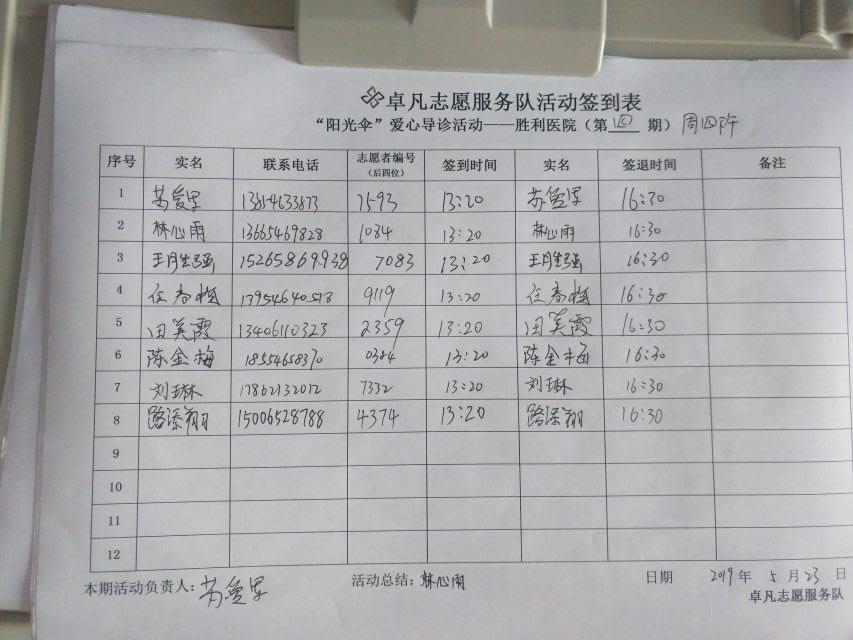 卓凡志愿服务队活动签到表
“阳光伞”爱心导诊活动——胜利医院（第四期）周四下午
序号 实名 联系电话 志愿者编号（后四位） 签到时间 实名 签退时间 备注
1 苏爱军 7593 13:20 苏爱军 16:30
2 林心雨 13665469828 1084 13:20 林心雨 16:30
3 15265869938 7083 13:20 16:30
4 任春梅 9119 13:20 任春梅 16:30
5 田美霞 13406110323 2359 13:20 田美霞 16:30
6 陈金梅 18554658370 0384 13:20 陈金梅 16:30
7 刘琳 17862132072 7332 13:20 刘琳 16:30
8 路添翔 15006528788 4374 13:20 路添翔 16:30
9
10
11
12
本期活动负责人：苏爱军 活动总结：林心雨 日期 2019年5月23日
卓凡志愿服务队